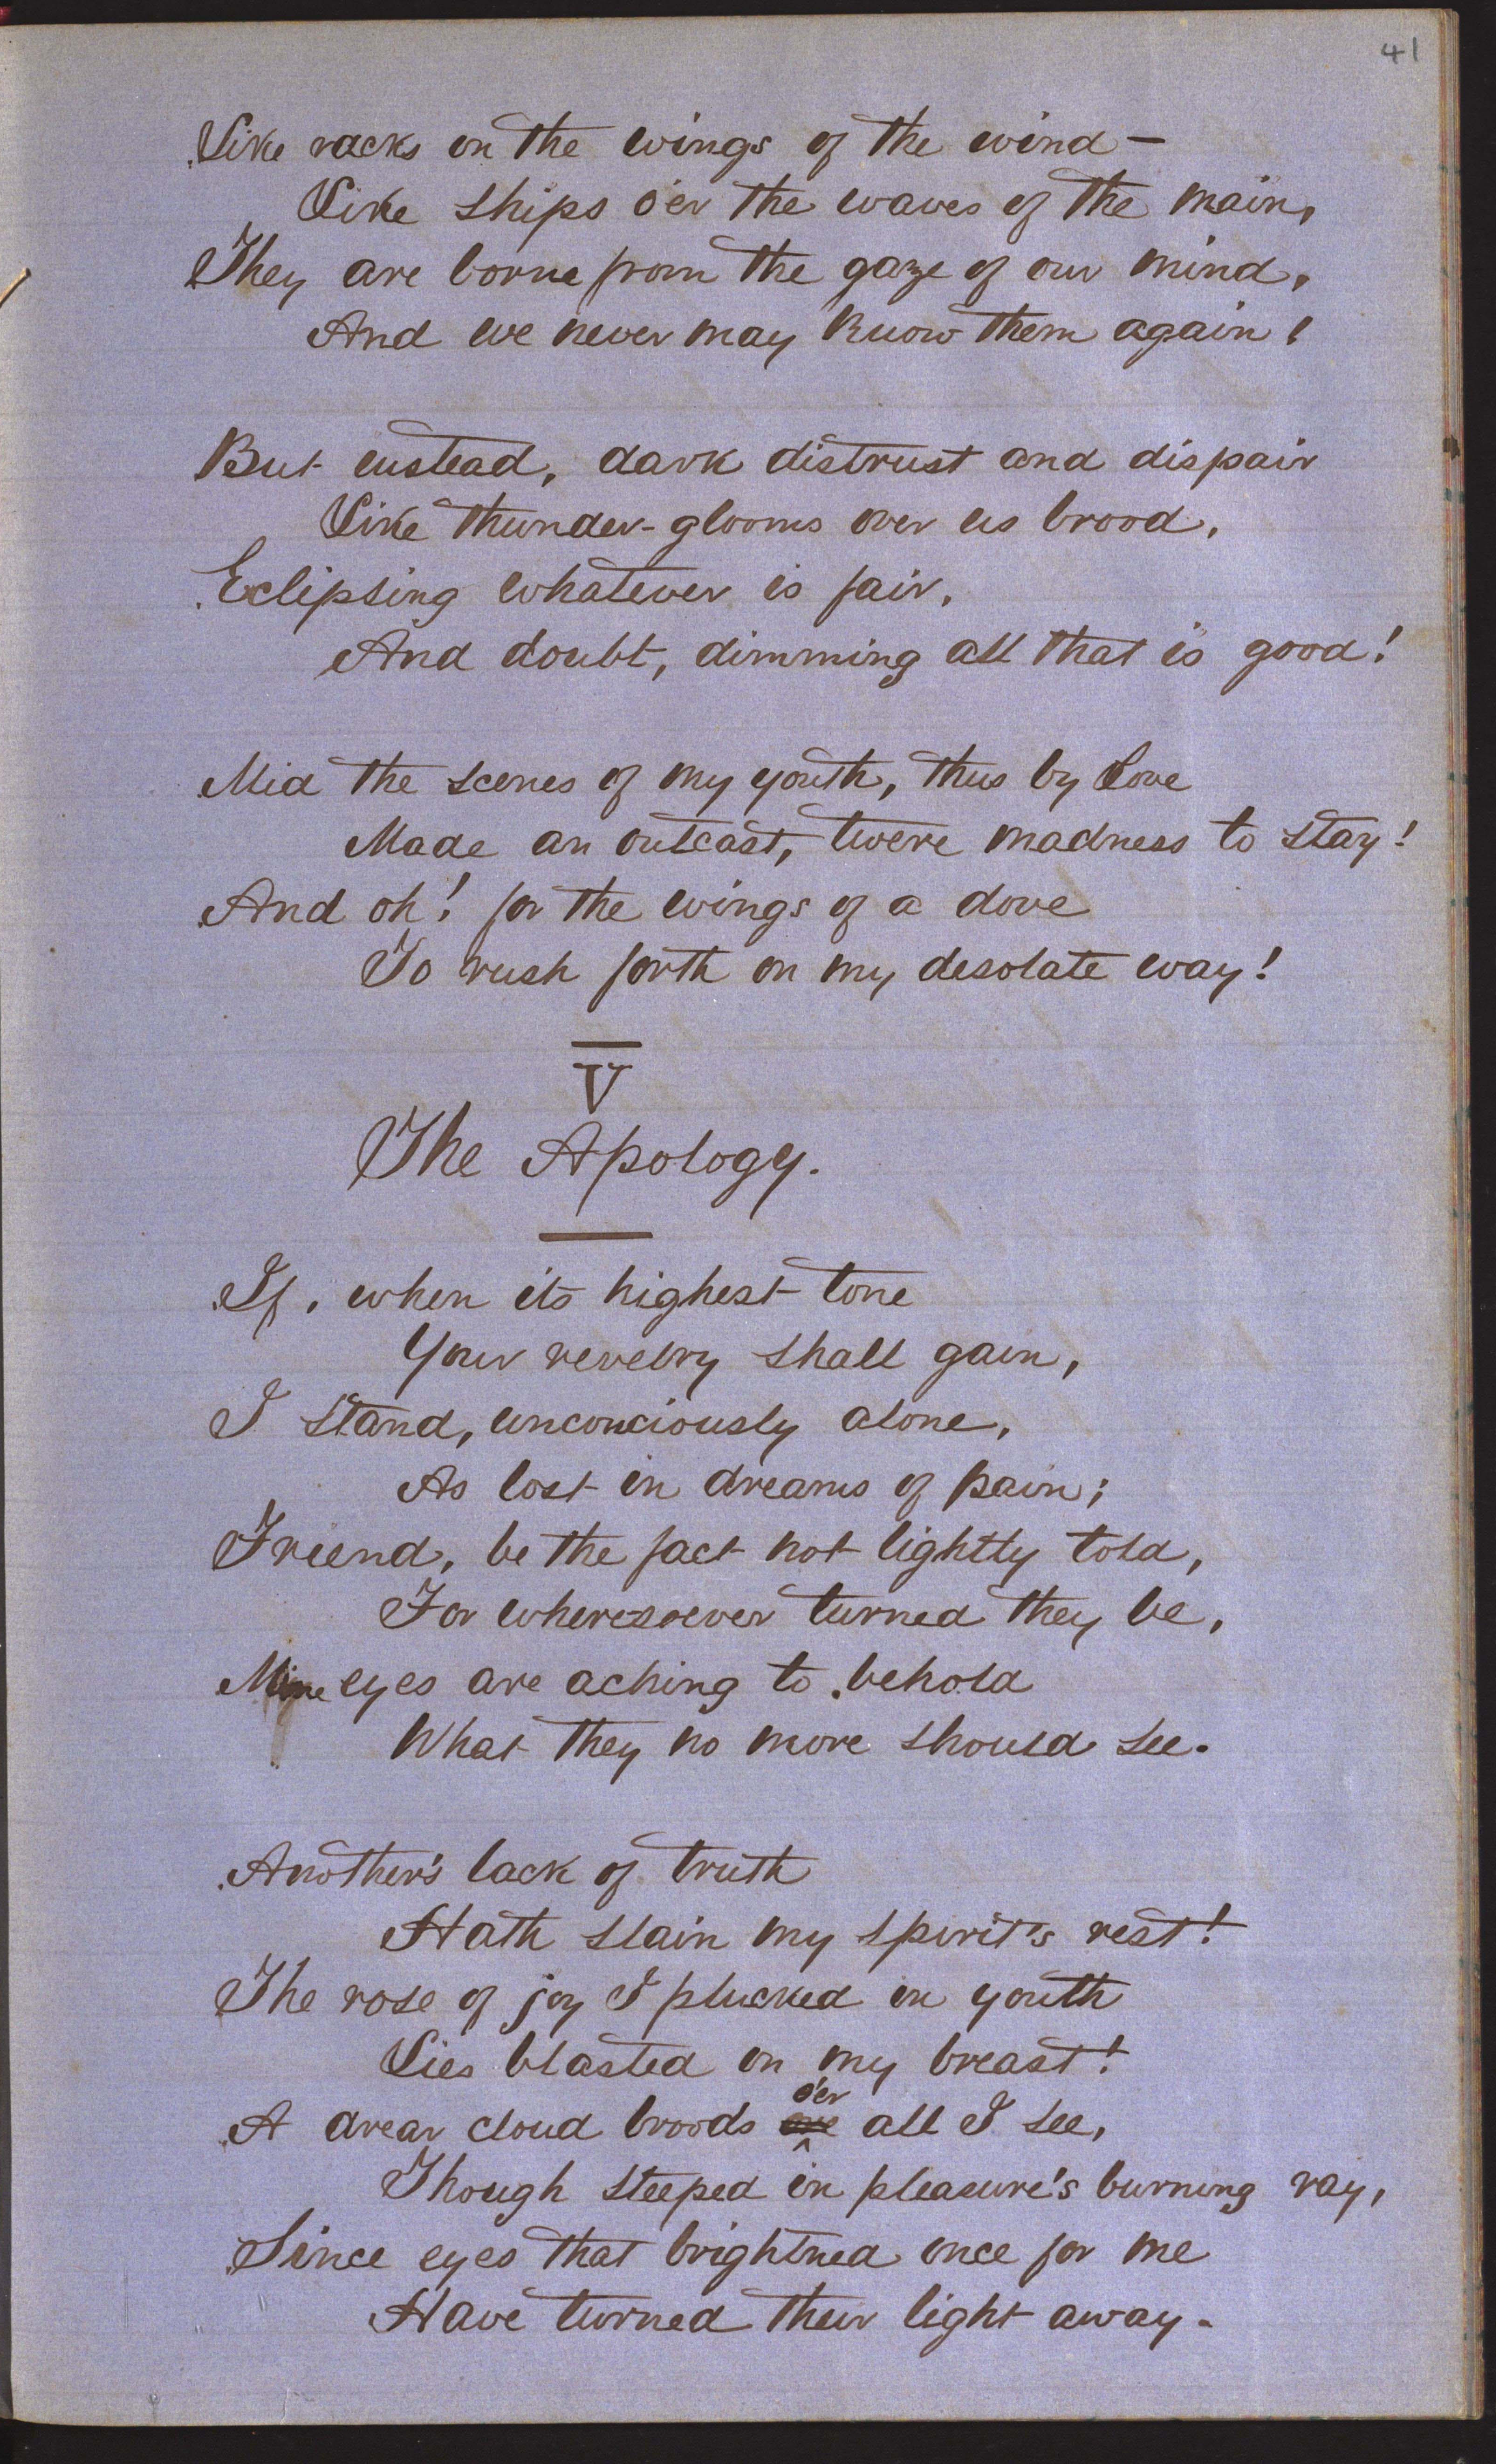 41
Like racks on the wings of the wind —
Like ships o'er the waves of the main,
They are borne from the gaze of our mind,
And we never may know them again!
But instead, dark distrust and dispair
Like thunder-glooms over us brood,
Eclipsing whatever is fair,
And doubt, dimming all that is good!
Mid the scenes of my youth, thus by Love
Made an outcast, twere madness to stay!
And oh! for the wings of a dove
To rush forth on my desolate way!
V
The Apology.
If, when its highest tone
Your revelry shall gain,
I stand, unconciously alone,
As lost in dreams of pain;
Friend, be the fact not lightly told,
For wheresoever turned they be,
Mine eyes are aching to behold
What they no more should see.
Another's lack of truth
Hath slain my spirit's rest!
The rose of joy I plucked in youth
Lies blasted on my breast!
o'er
A drear cloud broods ore all I see,
Though steeped in pleasure's burning ray,
Since eyes that brightned once for me
Have turned their light away.